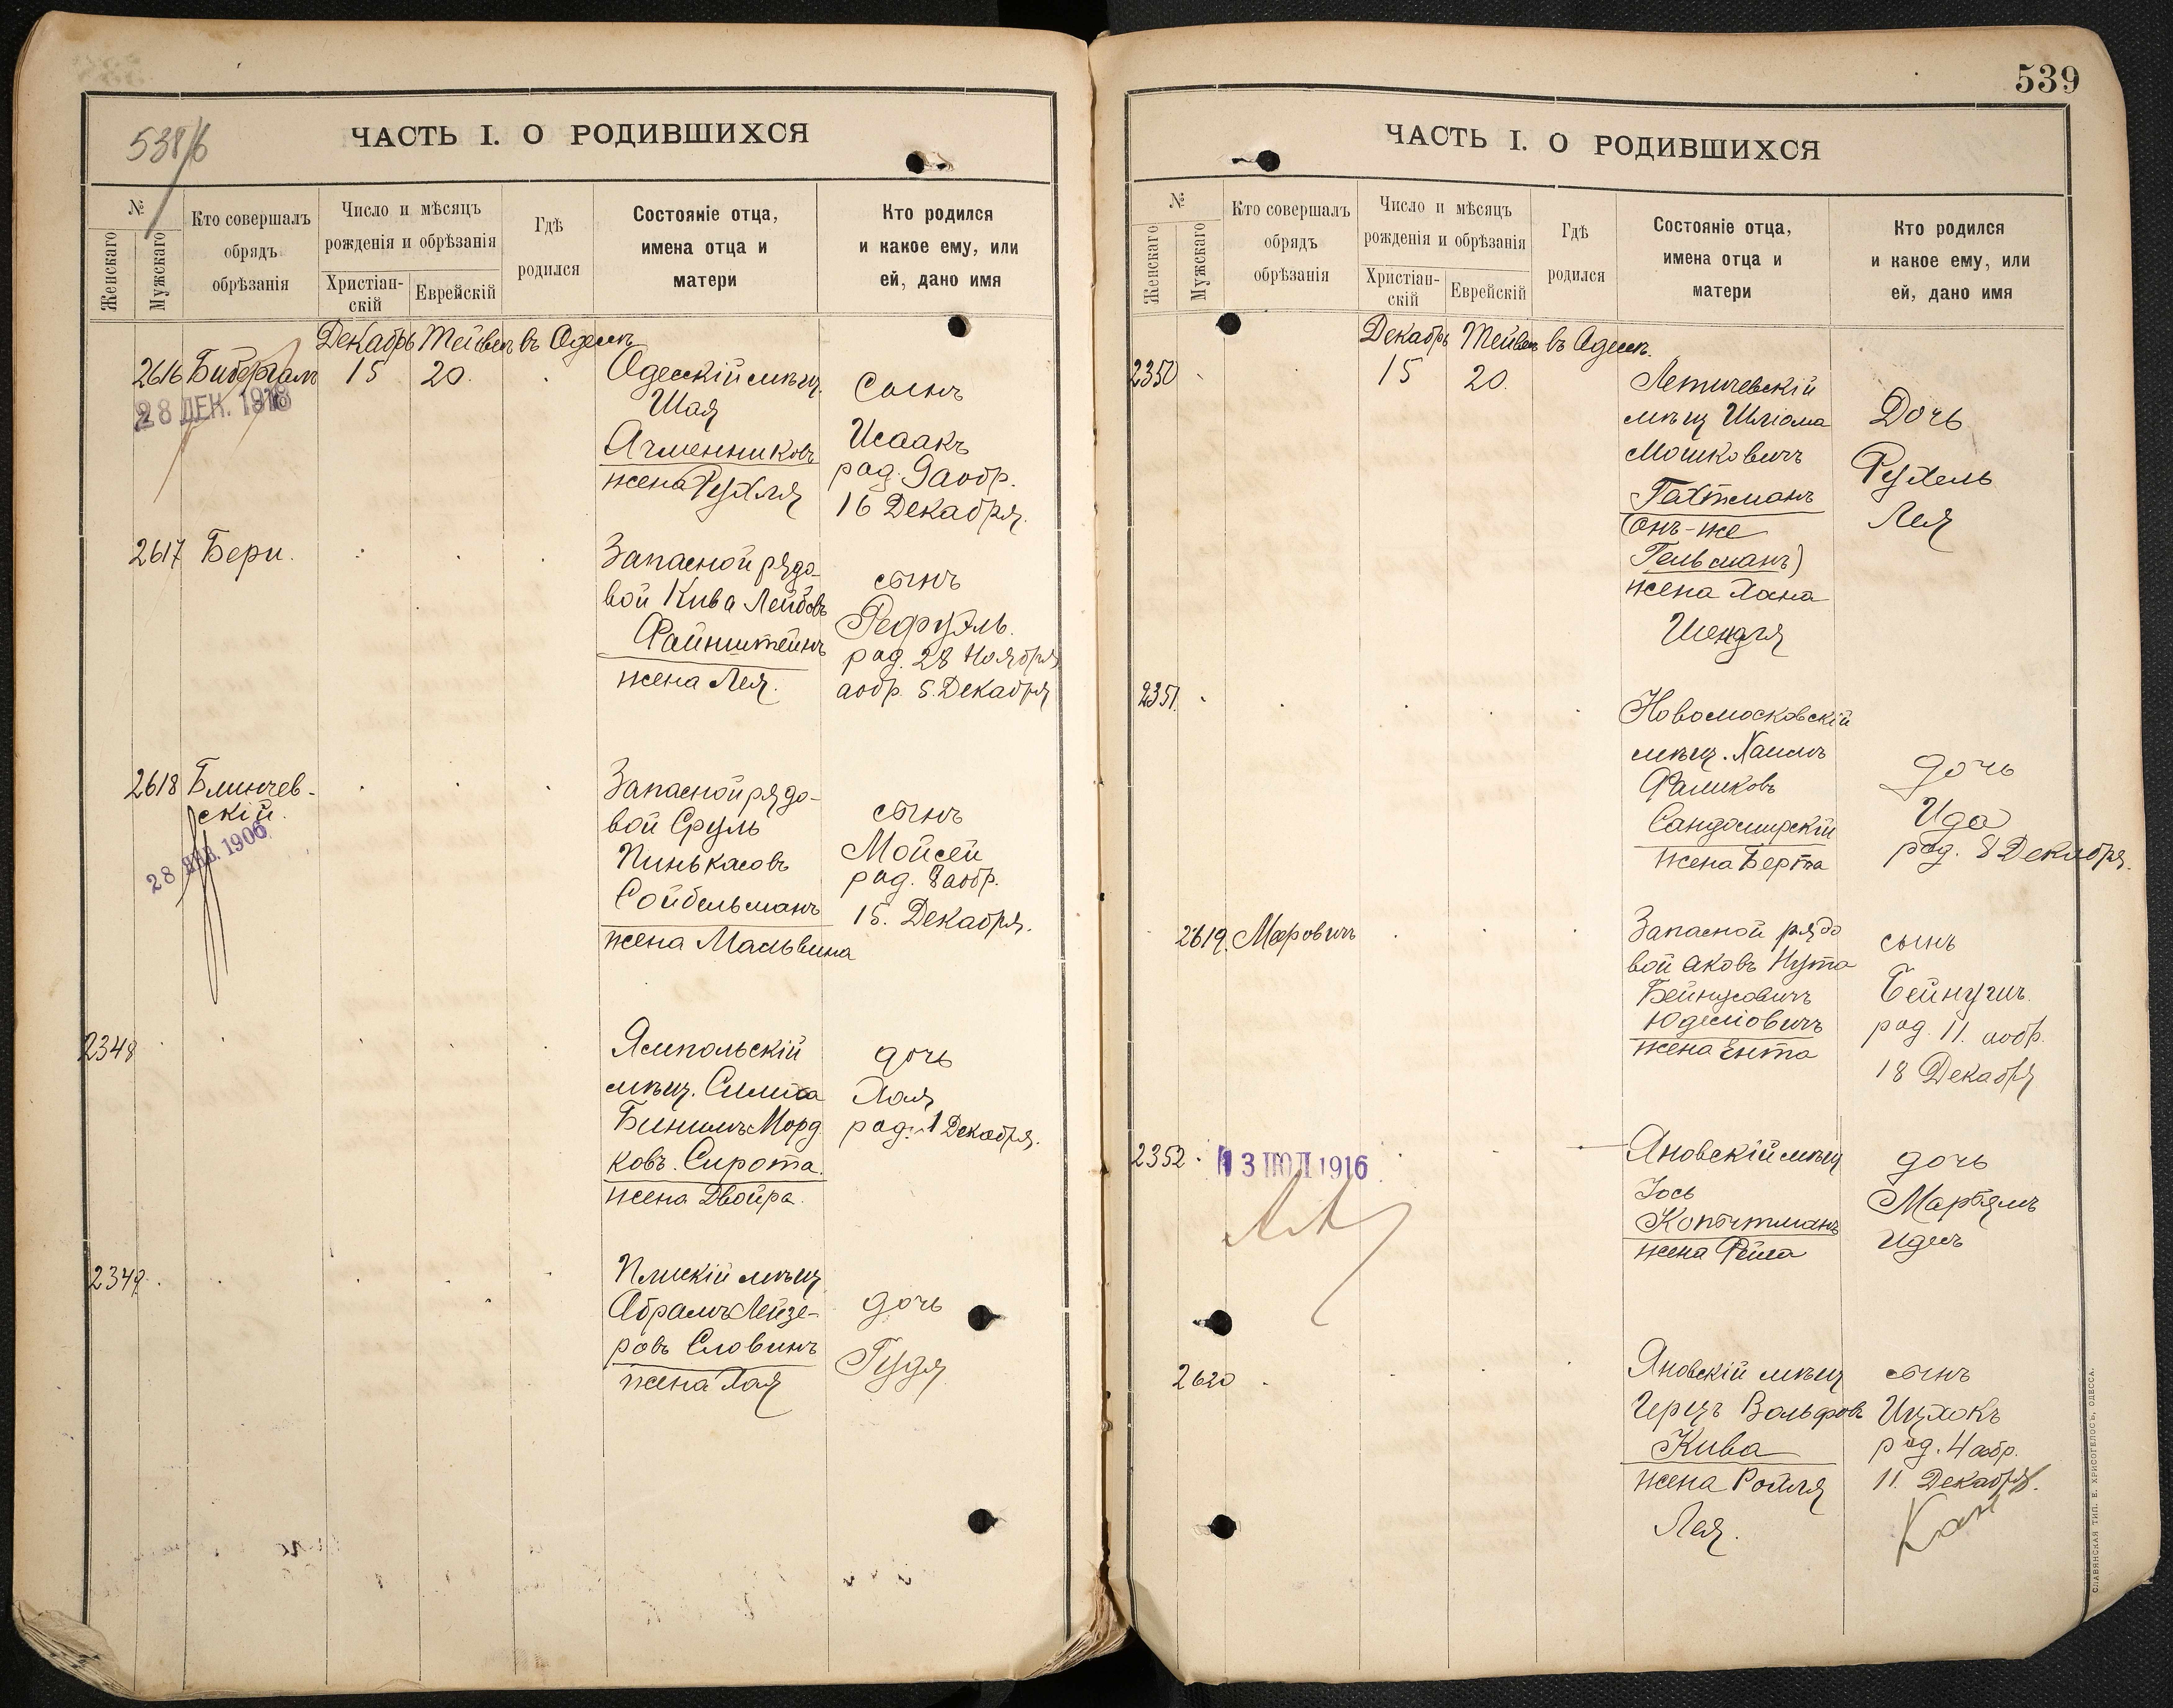 538/б
ЧАСТЬ I. О РОДИВШИХСЯ
№
Женскаго
Мужскаго
Кто совершалъ
обрядъ
обрѣзанія
Число и мѣсяцъ
рожденія и обрѣзанія
Христіан-
скій
Еврейскій
Гдѣ
родился
Состояніе отца,
имена отца и
матери
Кто родился
и какое ему, или
ей, дано имя
Декабрь Тейвеп въ Одессѣ
2616 15 20.
28 ДЕК. 1918
Одесскій мѣщ.
Шая
Ачменниковъ
жена Рухля
Сынъ
Исаакъ
род. 9 аобр.
16 Декабря.
2617 Бери.
Запасной рядо-
вой Кива Лейбовъ
Файнштейнъ
жена Лея.
сынъ
Рефуэль.
род. 28 Ноября
аобр. 5. Декабря
2618 Блинчев-
скій.
28 ЯНВ. 1906
Запасной рядо-
вой Сруль
Пинькасовъ
Сойбельманъ
жена Мальвина
сынъ
Мойсей
род. 8 аобр.
15. Декабря.
2348
Ямпольскій
мѣщ. Симха
Бинимъ Морд
ковъ. Сирота.
жена Двойра.
дочь
Хая
род. 1 Декабря.
2349.
мѣщ
Абрамъ Лейзе-
ровъ Словинъ
жена Хая
дочь
Гудя
539
ЧАСТЬ I. О РОДИВШИХСЯ
№
Женскаго
Мужскаго
Кто совершалъ
обрядъ
обрѣзанія
Число и мѣсяцъ
рожденія и обрѣзанія
Христіан-
скій
Еврейскій
Гдѣ
родился
Состояніе отца,
имена отца и
матери
Кто родился
и какое ему, или
ей, дано имя
Декабрь Тейвеп въ Одессѣ.
2350 15 20.
Летичевскій
мѣщ Шліома
Мошковичъ
Гахтманъ
(онъ-же
Гельманъ)
жена Хана
Шендля
Дочь
Рухель
Лея
2351.
Новомосковскій
мѣщ. Хаимъ
Файшковъ
Сандомирскій
жена Берта
дочь
Ида
род. 8 Декабря.
2619. Мееровичъ
Запасной рядо
вой Аковъ Нута
Бейнусовичъ
Юделіовичъ
жена Ента
сынъ
Бейнушъ
род. 11. аобр.
18 Декабря
2352.
13 ІЮЛ 1916
Яновскій мѣщ
Іось
Копытманъ
жена Фейга
дочь
Марьямъ
Идесъ
2620
Яновскій мѣщ
Герцъ Вольфовъ
Кива
жена Ройзя
Лея.
сынъ
Ицхокъ
род. 4 аобр.
11. Декабря.
СЛАВЯНСКАЯ ТИП. Е. ХРИСОГЕЛОСЪ, ОДЕССА.